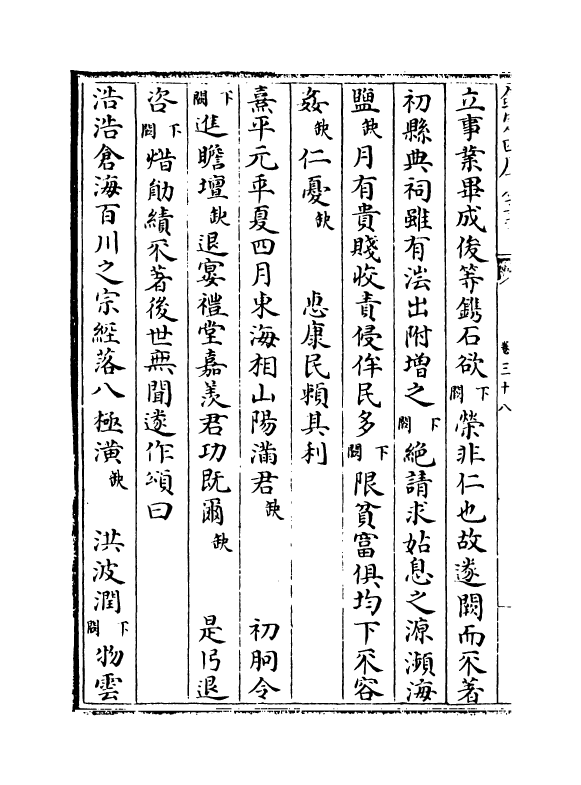 卷三十八
立事業畢成俊等鐫石欲下闕榮非仁也故遂闕而不著
初縣典祠雖有法出附增之下闕絶請求姑息之源瀕海
鹽缺月有貴賤收責侵侔民多下闕限貧富俱均下不容
姦缺仁憂缺　　恚康民頼其利
熹平元年夏四月東海相山陽滿君缺　　初朐令
下闕進瞻壇缺退宴禮堂嘉羨君功既爾缺　　是乃退
咨下闕㷉勛績不著後世無聞遂作頌曰
浩浩倉海百川之宗經落八極潢缺　洪波潤下闕物雲